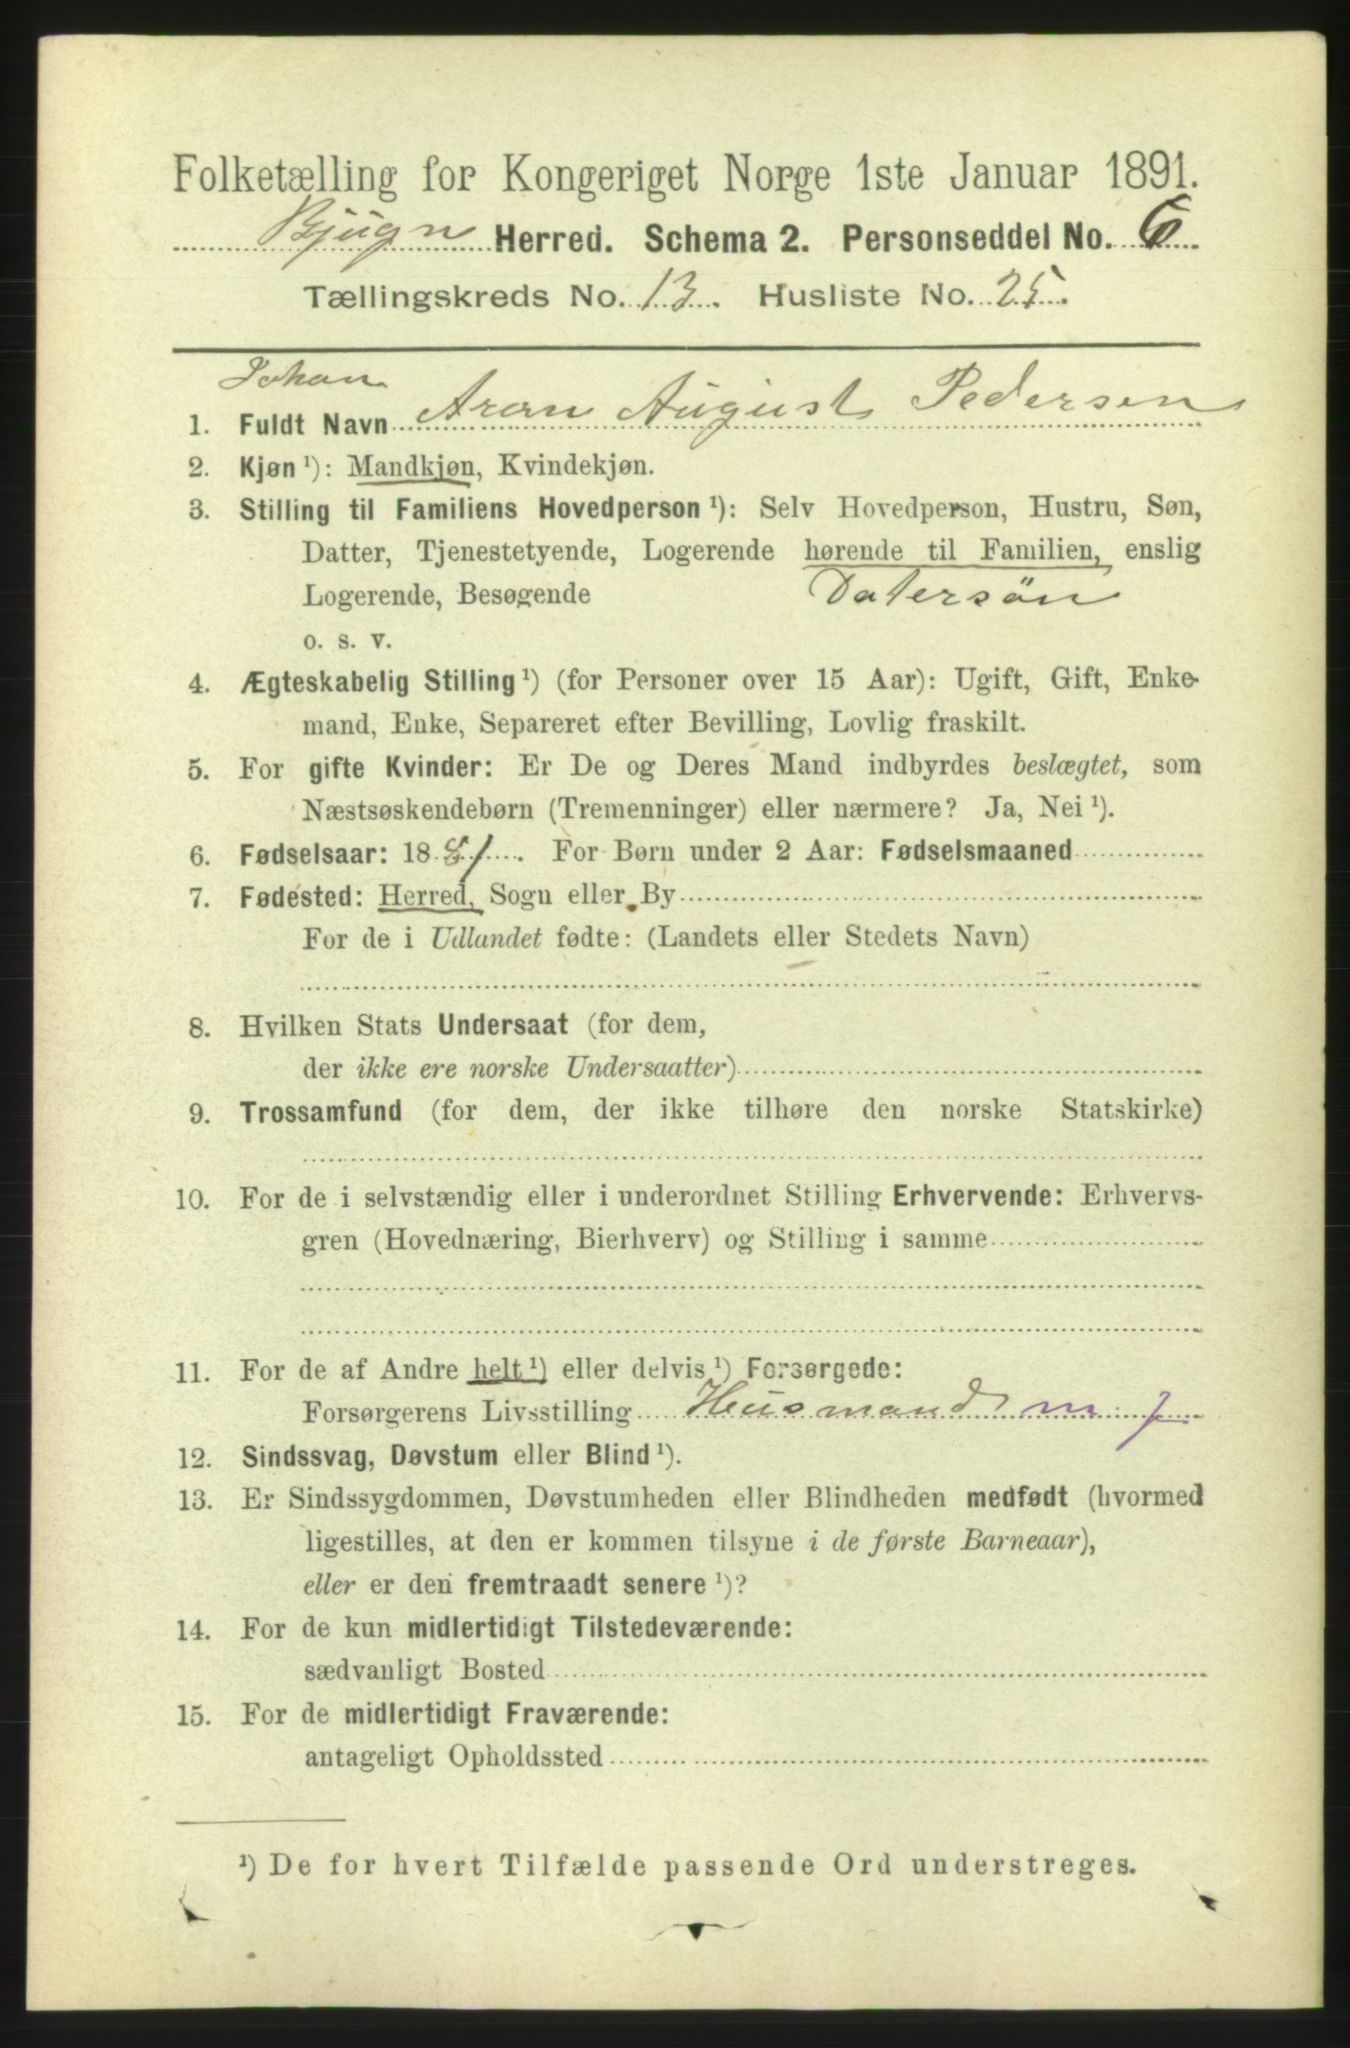 Folketælling for Kongeriget Norge 1ste Januar 1891.
Bjugn Herred. Schema 2. Personseddel No. 6
Tællingskreds No. 13. Husliste No. 25.
Johan
1. Fuldt Navn Aron August Pedersen
2. Kjøn ¹): Mandkjøn, Kvindekjøn.
3. Stilling til Familiens Hovedperson ¹): Selv Hovedperson, Hustru, Søn,
Datter, Tjenestetyende, Logerende hørende til Familien, enslig
Logerende, Besøgende Datersön
o. s. v.
4. Ægteskabelig Stilling ¹) (for Personer over 15 Aar): Ugift, Gift, Enke-
mand, Enke, Separeret efter Bevilling, Lovlig fraskilt.
5. For gifte Kvinder: Er De og Deres Mand indbyrdes beslægtet, som
Næstsøskendebørn (Tremenninger) eller nærmere? Ja, Nei ¹).
6. Fødselsaar: 1881. For Børn under 2 Aar: Fødselsmaaned
7. Fødested: Herred, Sogn eller By
For de i Udlandet fødte: (Landets eller Stedets Navn)
8. Hvilken Stats Undersaat (for dem,
der ikke ere norske Undersaatter)
9. Trossamfund (for dem, der ikke tilhøre den norske Statskirke)
10. For de i selvstændig eller i underordnet Stilling Erhvervende: Erhvervs-
gren (Hovednæring, Bierhverv) og Stilling i samme
11. For de af Andre helt ¹) eller delvis ¹) Forsørgede:
Forsørgerens Livsstilling Husmand m. j
12. Sindssvag, Døvstum eller Blind ¹).
13. Er Sindssygdommen, Døvstumheden eller Blindheden medfødt (hvormed
ligestilles, at den er kommen tilsyne i de første Barneaar),
eller er den fremtraadt senere ¹)?
14. For de kun midlertidigt Tilstedeværende:
sædvanligt Bosted
15. For de midlertidigt Fraværende:
antageligt Opholdssted
¹) De for hvert Tilfælde passende Ord understreges.